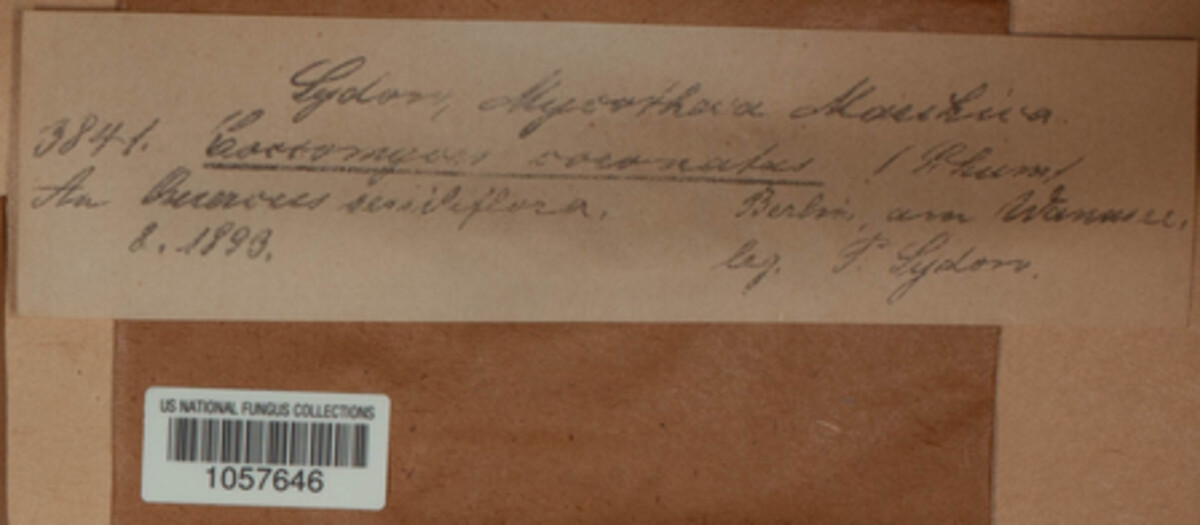 Sydow, Mycotheca Marchica.
3841. Coccomyces coronatus (Schum)
An Quercus sessiliflora. Berlin, am Wannsee.
8. 1893. leg. P. Sydow.
US NATIONAL FUNGUS COLLECTIONS
1057646